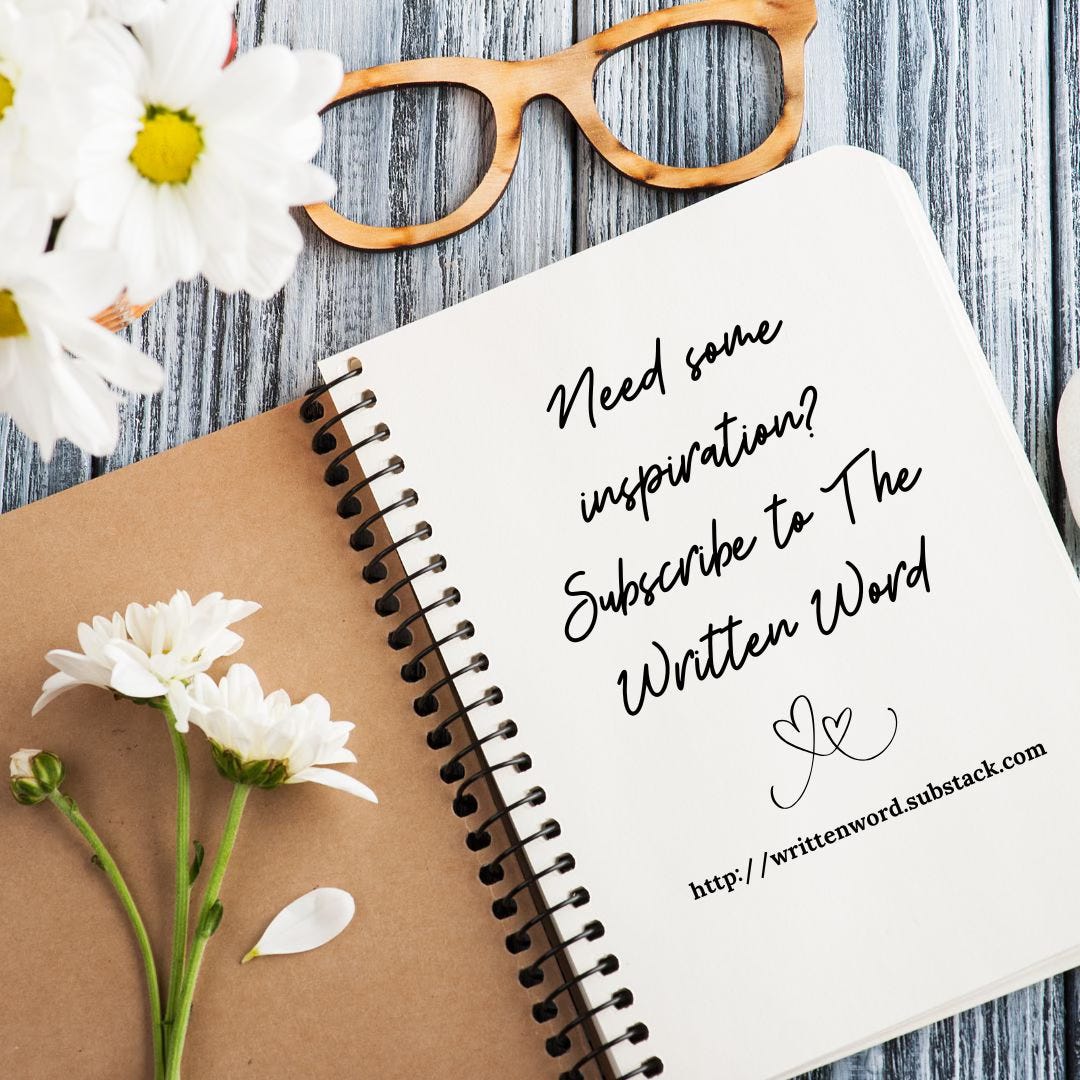 Need some
inspiration?
Subscribe to The
Written Word
http://writtenword.substack.com